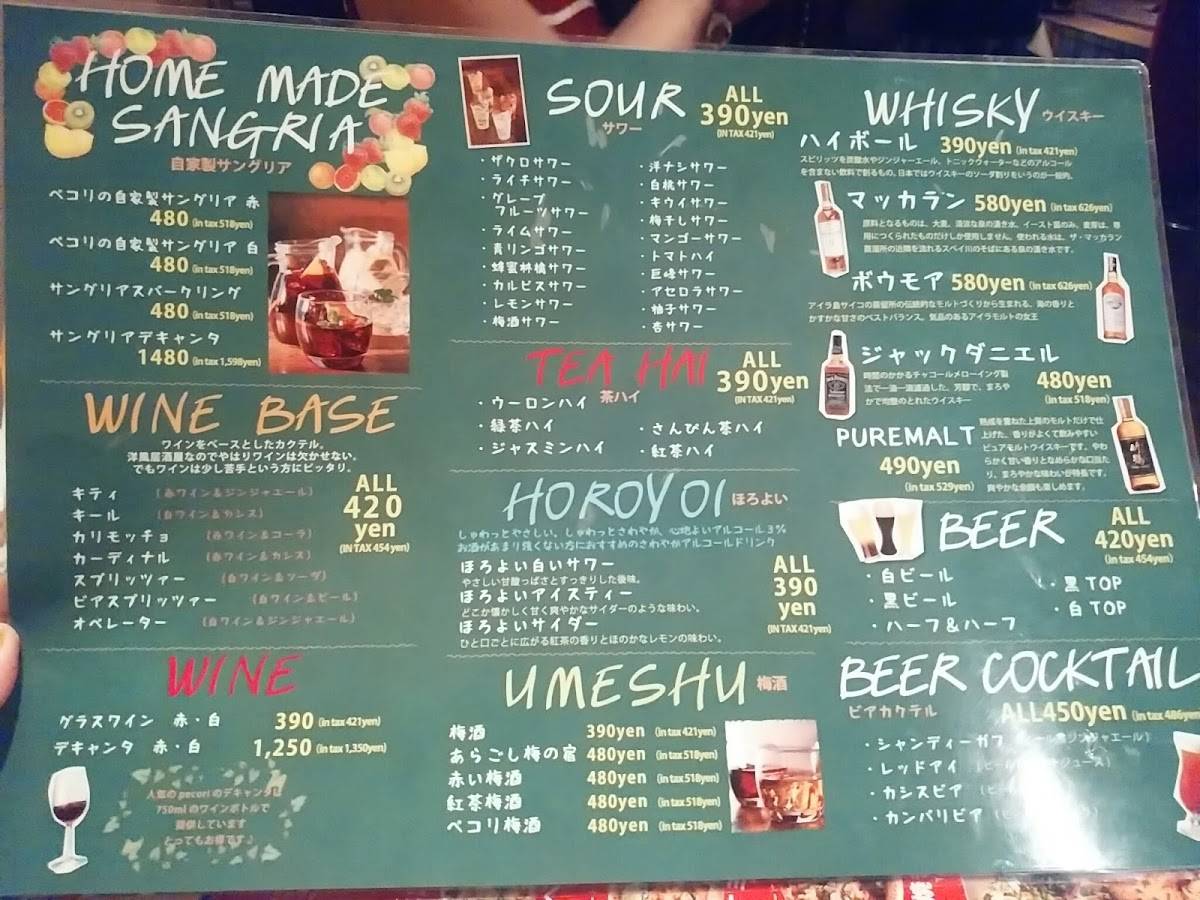 HOME MADE
SANGRIA
自家製サングリア
ペコリの自家製サングリア 赤
480 (in tax 518yen)
ペコリの自家製サングリア 白
480 (in tax 518yen)
サングリアスパークリング
480 (in tax 518yen)
サングリアデキャンタ
1480 (in tax 1,598yen)
WINE BASE
ワインをベースとしたカクテル。
洋風居酒屋なのでやはりワインは欠かせない。
でもワインは少し苦手という方にピッタリ。
ALL
420
yen
(IN TAX 454yen)
キティ (赤ワイン&ジンジャエール)
キール (白ワイン&カシス)
カリモッチョ (赤ワイン&コーラ)
カーディナル (赤ワイン&カシス)
スプリッツァー (白ワイン&ソーダ)
ビアスプリッツァー (白ワイン&ビール)
オペレーター (白ワイン&ジンジャエール)
WINE
グラスワイン 赤・白 390 (in tax 421yen)
デキャンタ 赤・白 1,250 (in tax 1,350yen)
人気の pecori のデキャンタは
750ml のワインボトルで
提供しています
とってもお得です♪
SOUR
サワー
ALL
390yen
(IN TAX 421yen)
・ザクロサワー
・ライチサワー
・グレープ
フルーツサワー
・ライムサワー
・青リンゴサワー
・蜂蜜林檎サワー
・カルピスサワー
・レモンサワー
・梅酒サワー
・洋ナシサワー
・白桃サワー
・キウイサワー
・梅干しサワー
・マンゴーサワー
・トマトハイ
・巨峰サワー
・アセロラサワー
・柚子サワー
・杏サワー
TEA HAI
茶ハイ
ALL
390yen
(IN TAX 421yen)
・ウーロンハイ
・緑茶ハイ
・ジャスミンハイ
・さんぴん茶ハイ
・紅茶ハイ
HOROYOI ほろよい
しゅわっとやさしい、しゅわっとさわやか、心地よいアルコール3%
お酒があまり強くない方におすすめのさわやかアルコールドリンク
ほろよい白いサワー
やさしい甘酸っぱさとすっきりした後味。
ほろよいアイスティー
どこか懐かしく甘く爽やかなサイダーのような味わい。
ほろよいサイダー
ひと口ごとに広がる紅茶の香りとほのかなレモンの味わい。
ALL
390
yen
(IN TAX 421yen)
UMESHU 梅酒
梅酒 390yen (in tax 421yen)
あらごし梅の宿 480yen (in tax 518yen)
赤い梅酒 480yen (in tax 518yen)
紅茶梅酒 480yen (in tax 518yen)
ペコリ梅酒 480yen (in tax 518yen)
WHISKY ウイスキー
ハイボール 390yen (in tax 421yen)
スピリッツを炭酸水やジンジャーエール、トニックウォーターなどのアルコール
を含まない飲料で割るもの。日本ではウイスキーのソーダ割りをいうのが一般的。
マッカラン 580yen (in tax 626yen)
原料となるものは、大麦、清冽な泉の湧き水、イースト菌のみ、麦芽は、専
用につくられたものだけしか使用しません。使われる水は、ザ・マッカラン
蒸溜所の近隣を流れるスペイ川のそばにある泉の湧き水です。
ボウモア 580yen (in tax 626yen)
アイラ島サイコの蒸留所の伝統的なモルトづくりから生まれる、海の香りと
かすかな甘さのベストバランス。気品のあるアイラモルトの女王
ジャックダニエル
時間のかかるチャコールメローイング製
法で一滴一滴濾過した、芳醇で、まろや
かで均整のとれたウイスキー
480yen
(in tax 518yen)
PUREMALT
490yen
(in tax 529yen)
熟成を重ねた上質のモルトだけで仕
上げた、香りがよくて飲みやすい
ピュアモルトウイスキーです。やわ
らかく甘い香りとなめらかな口当た
り、まろやかな味わいが特長です。
爽やかな余韻も楽しめます。
BEER
ALL
420yen
(in tax 454yen)
・白ビール
・黒ビール
・ハーフ&ハーフ
・黒 TOP
・白 TOP
BEER COCKTAIL
ビアカクテル
ALL450yen (in tax 486yen)
・シャンディーガフ (ビール&ジンジャエール)
・レッドアイ
・カシスビア
・カンパリビア